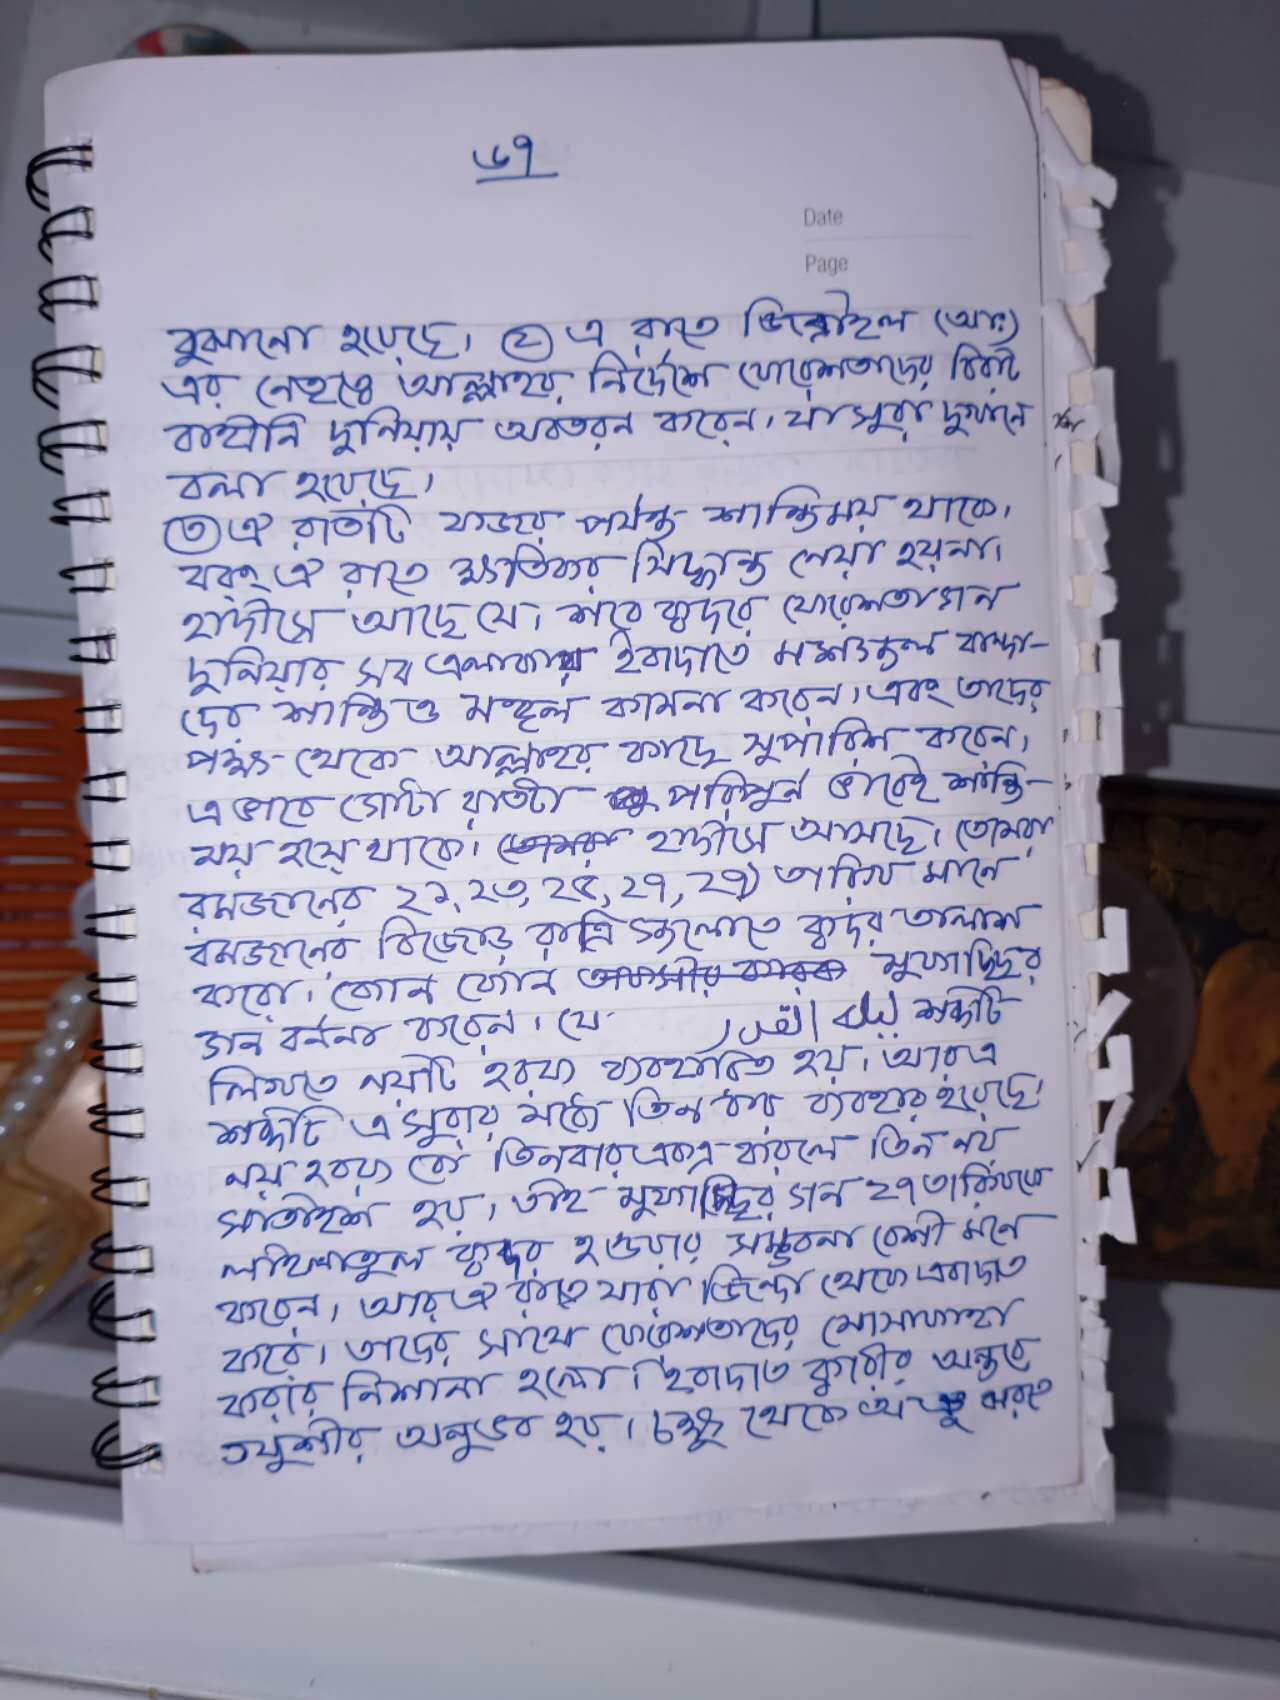 ৬৭
Date
Page
বুঝানো হয়েছে। (২) এ রাতে জিব্রাইল (আঃ)
এর নেতৃত্বে আল্লাহর নির্দেশে ফেরেশতাদের বিরাট
বাহীনি দুনিয়ায় অবতরন করেন। যা সুরা দুখানে
বলা হয়েছে।
(৩) ঐ রাতটি ফজর পর্যন্ত শান্তিময় থাকে।
বরং ঐ রাতে ক্ষতিকর সিদ্ধান্ত নেয়া হয়না।
হাদীসে আছে যে। শবে ক্বদরে ফেরেশতাগন
দুনিয়ার সব এলাকায় ইবাদাতে মশগুল বান্দা-
দের শান্তি ও মঙ্গল কামনা করেন। এবং তাদের
পক্ষ থেকে আল্লাহর কাছে সুপারিশ করেন।
এ ভাবে গোটা রাতটা পরিপুর্ন ভাবেই শান্তি-
ময় হয়ে থাকে। তোমরা হাদীসে আসছে। তোমরা
রমজানের ২১, ২৩, ২৫, ২৭, ২৯ তারিখ মানে
রমজানের বিজোড় রাত্রি গুলোতে ক্বদর তালাশ
করো। কোন কোন তাফসীর কারক মুফাচ্ছির
গন বর্ননা করেন। যে ليلة القدر শব্দটি
লিখতে নয়টি হরফ ব্যবহারিত হয়। আর এ
শব্দটি এ সুরায় মধ্যে তিন বার ব্যবহার হয়েছে।
নয় হরফ কে তিনবার একত্র করলে তিন নয়
সাতাইশ হয়। তাই মুফাচ্ছির গন ২৭ তারিখকে
লাইলাতুল ক্বদর হওয়ার সম্ভবনা বেশী মনে
করেন। আর ঐ রাতে যারা জিন্দা থেকে এবাদাত
করে। তাদের সাথে ফেরেশতাদের মোসাফাহা
করার নিশানা হলো। ইবাদাত ক্বারীর অন্তরে
খুশীর অনুভব হয়। চক্ষু থেকে অশ্রু ঝরতে